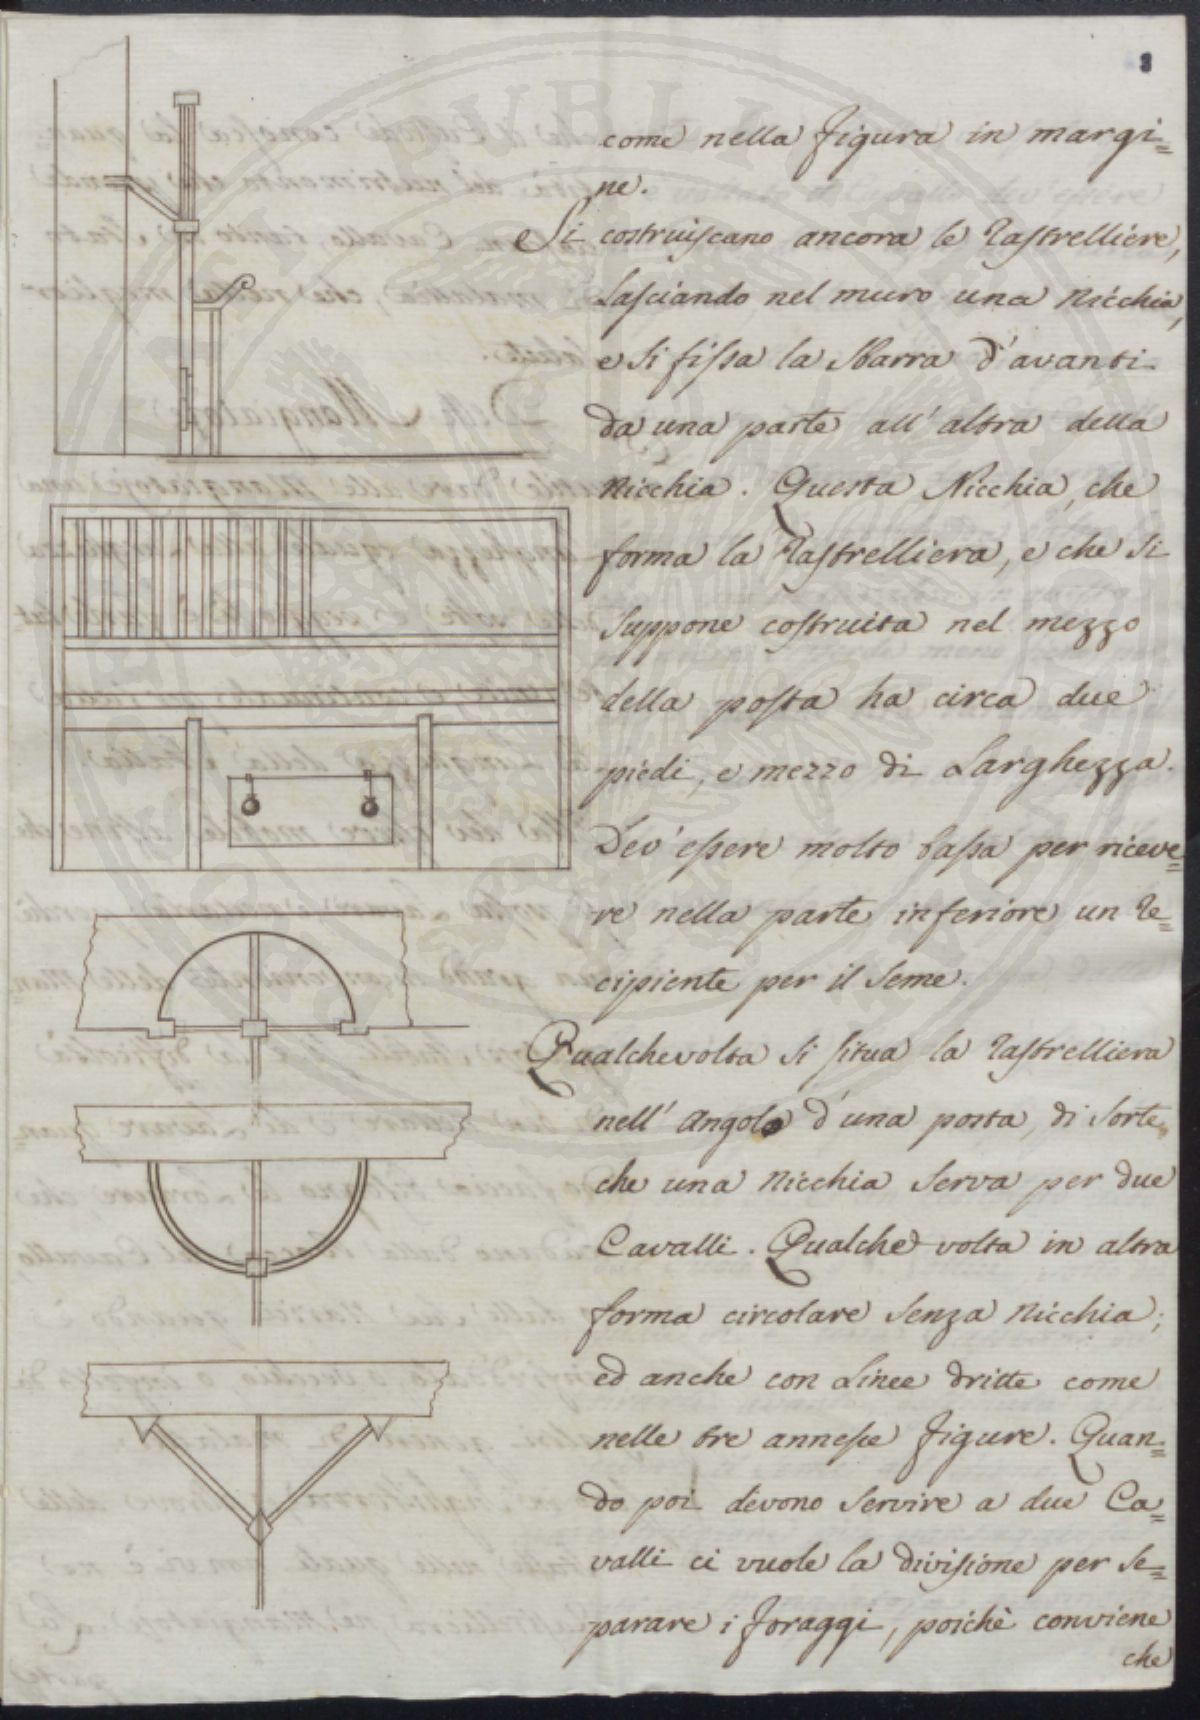 8
come nella figura in margi=
ne.
Si costruiscano ancora le rastrelliere,
lasciando nel muro una Nicchia,
e si fissa la sbarra d'avanti
da una parte all'altra della
Nicchia. Questa Nicchia, che
forma la rastrelliera, e che si
suppone costruita nel mezzo
della posta ha circa due
piedi, e mezzo di Larghezza.
Dev'essere molto bassa per riceve=
re nella parte inferiore un re=
cipiente per il seme.
Qualchevolta si situa la rastrelliera
nell'Angolo d'una posta, di sorte
che una Nicchia serva per due
Cavalli. Qualche volta in altra
forma circolare senza Nicchia;
ed anche con Linee dritte come
nelle tre annesse figure. Quan=
do poi devono servire a due Ca=
valli ci vuole la divisione per se=
parare i foraggi, poichè conviene
che